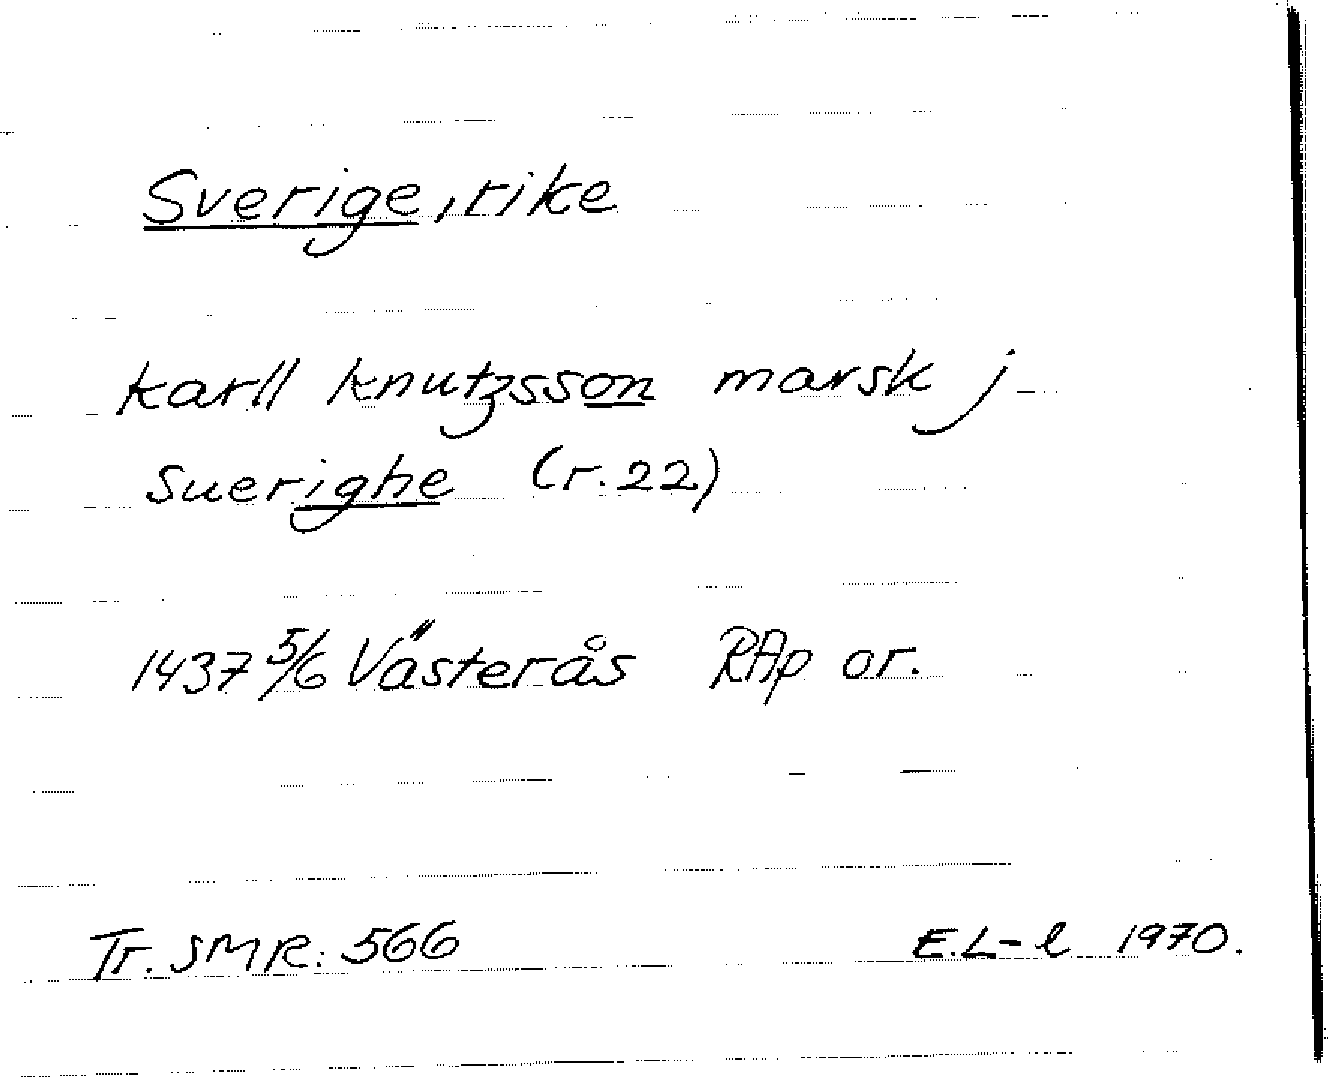 Sverige, rike
karll knutzsson marsk j
suerighe (r.22)
1437 5/6 Västerås RAp or.
Tr. SMR: 566 E.L-l 1970.